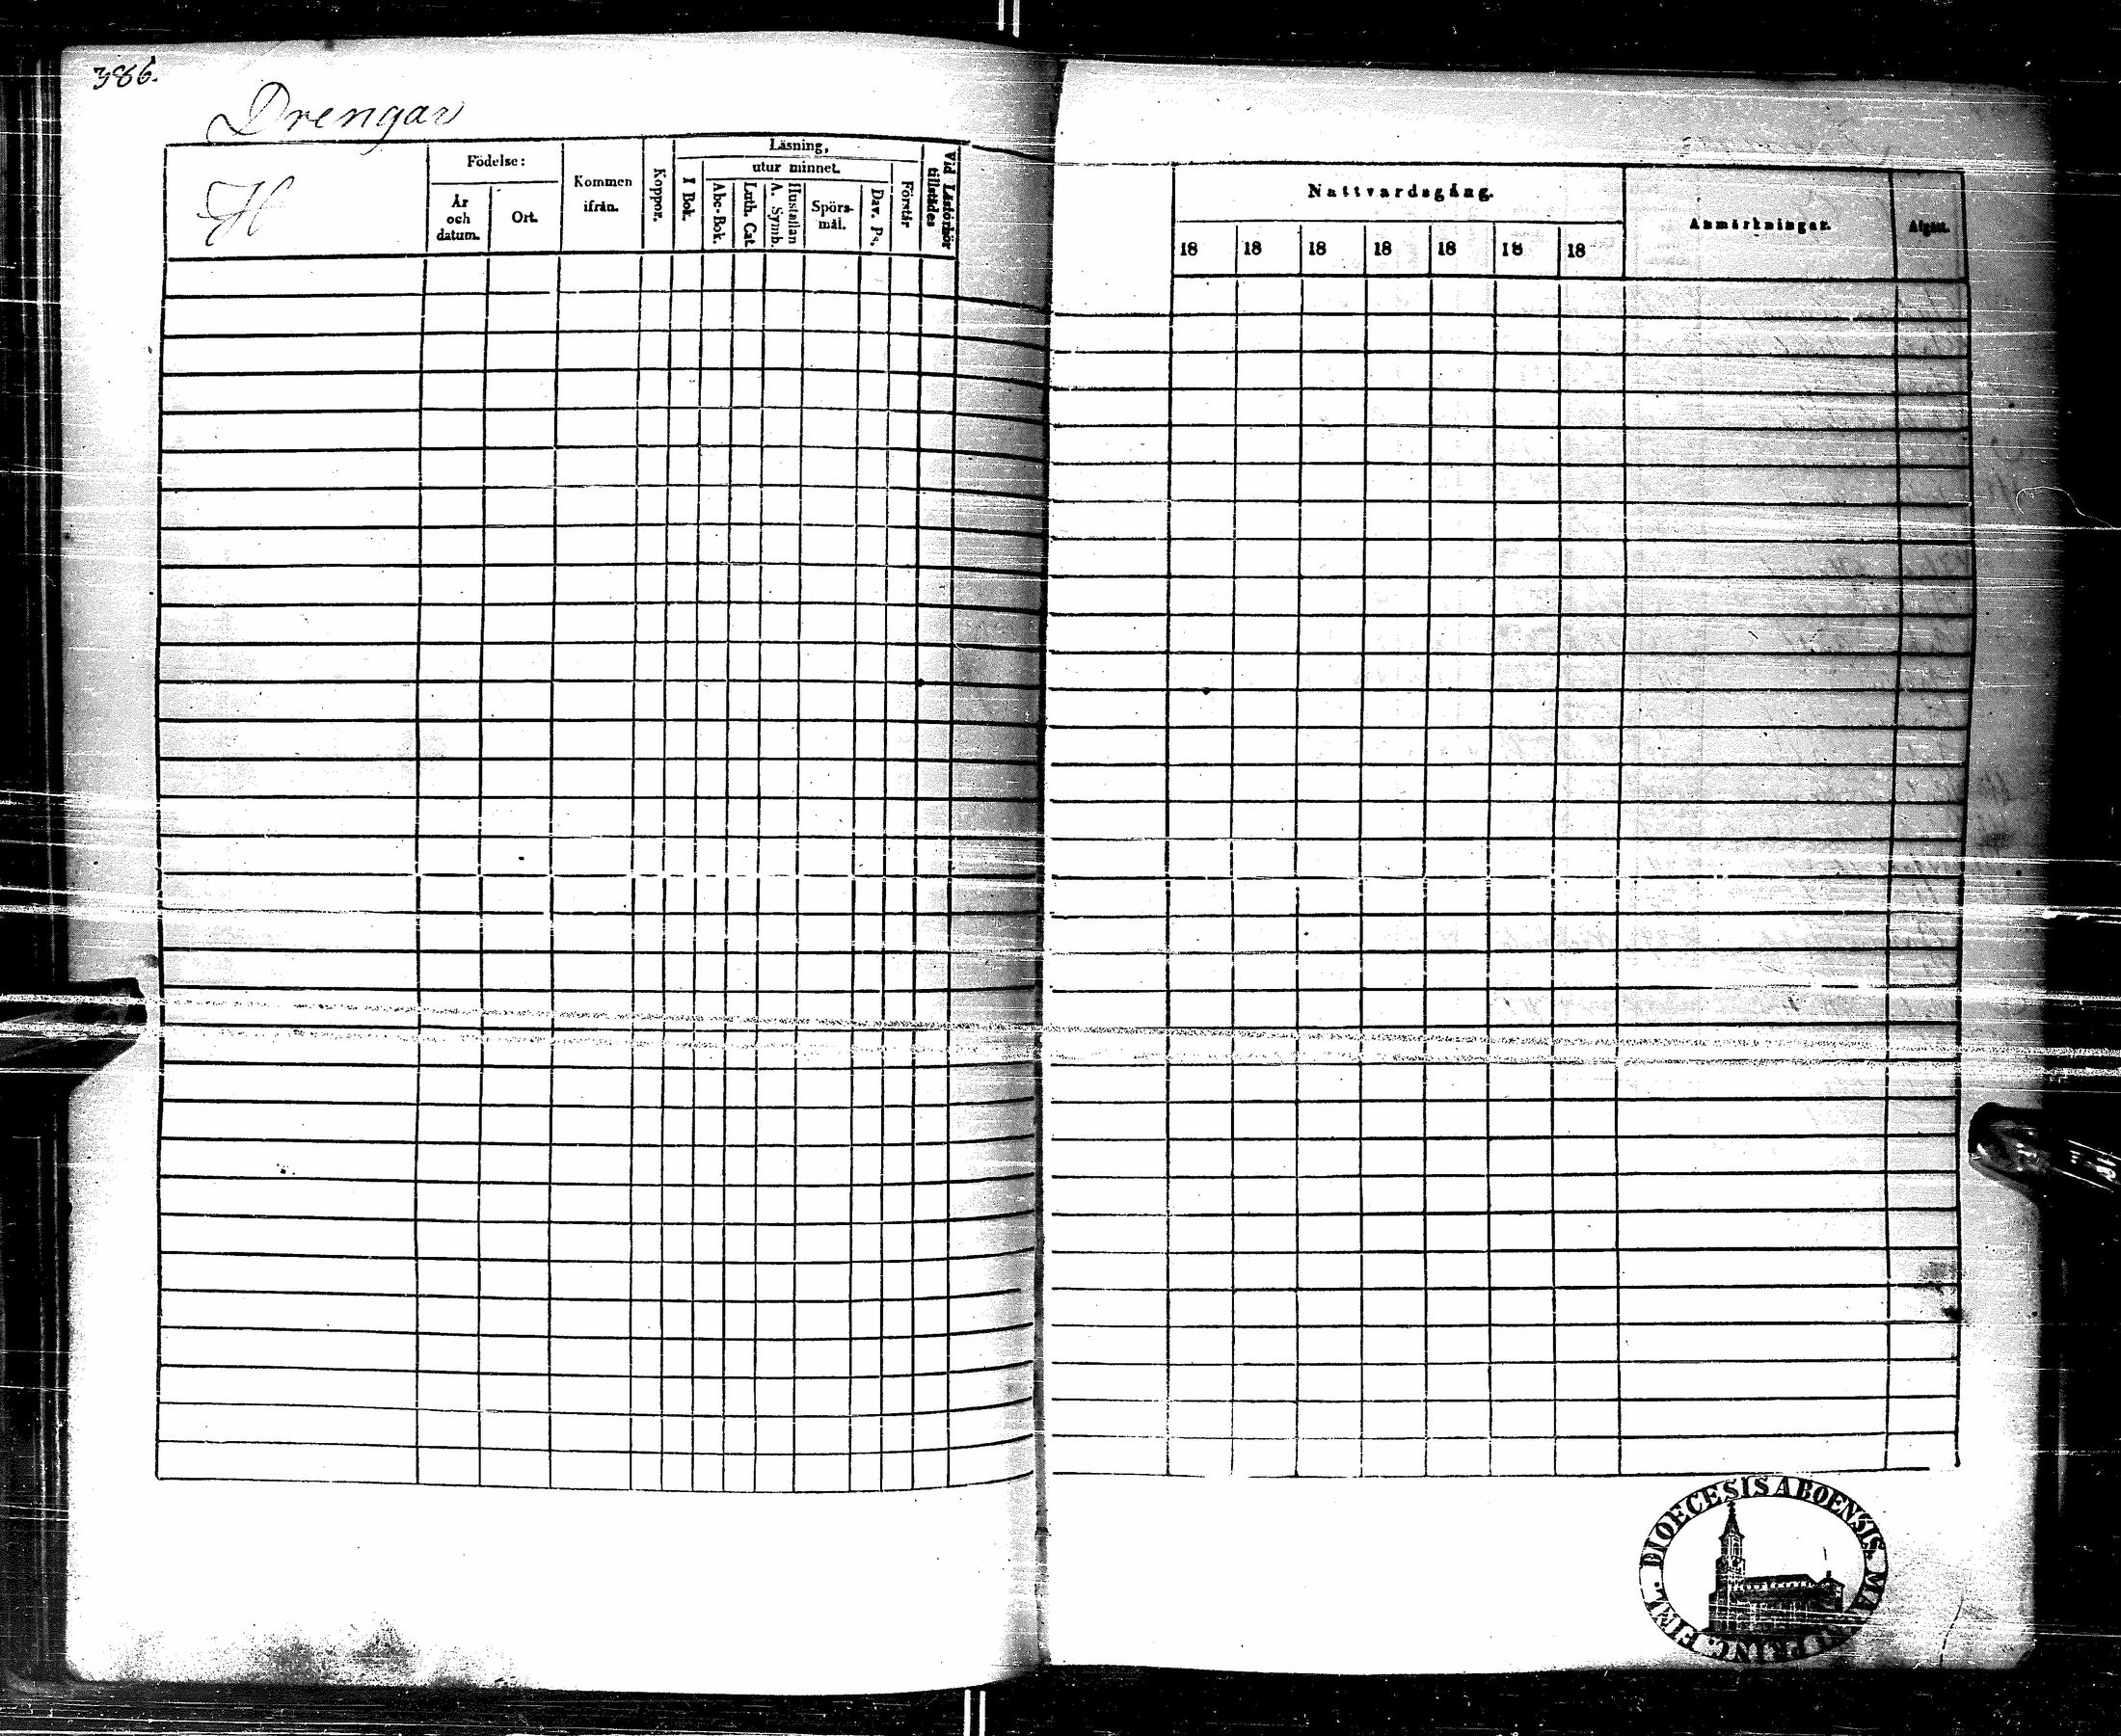 386.
Drengar
H
Födelse:
År och datum.
Ort.
Kommen ifrån.
Koppor.
Läsning,
utur minnet.
I Bok.
Abc-Bok.
Luth. Cat.
A. Symb. Hustaflan
Spörs-mål.
Dav. Ps.
Förstår
Vid Läsförhör tillstädes
Nattvardsgång.
18 18 18 18 18 18 18
Anmärkningar.
Afgått.
FINL. DIOECESIS ABOENSIS. PRINC.